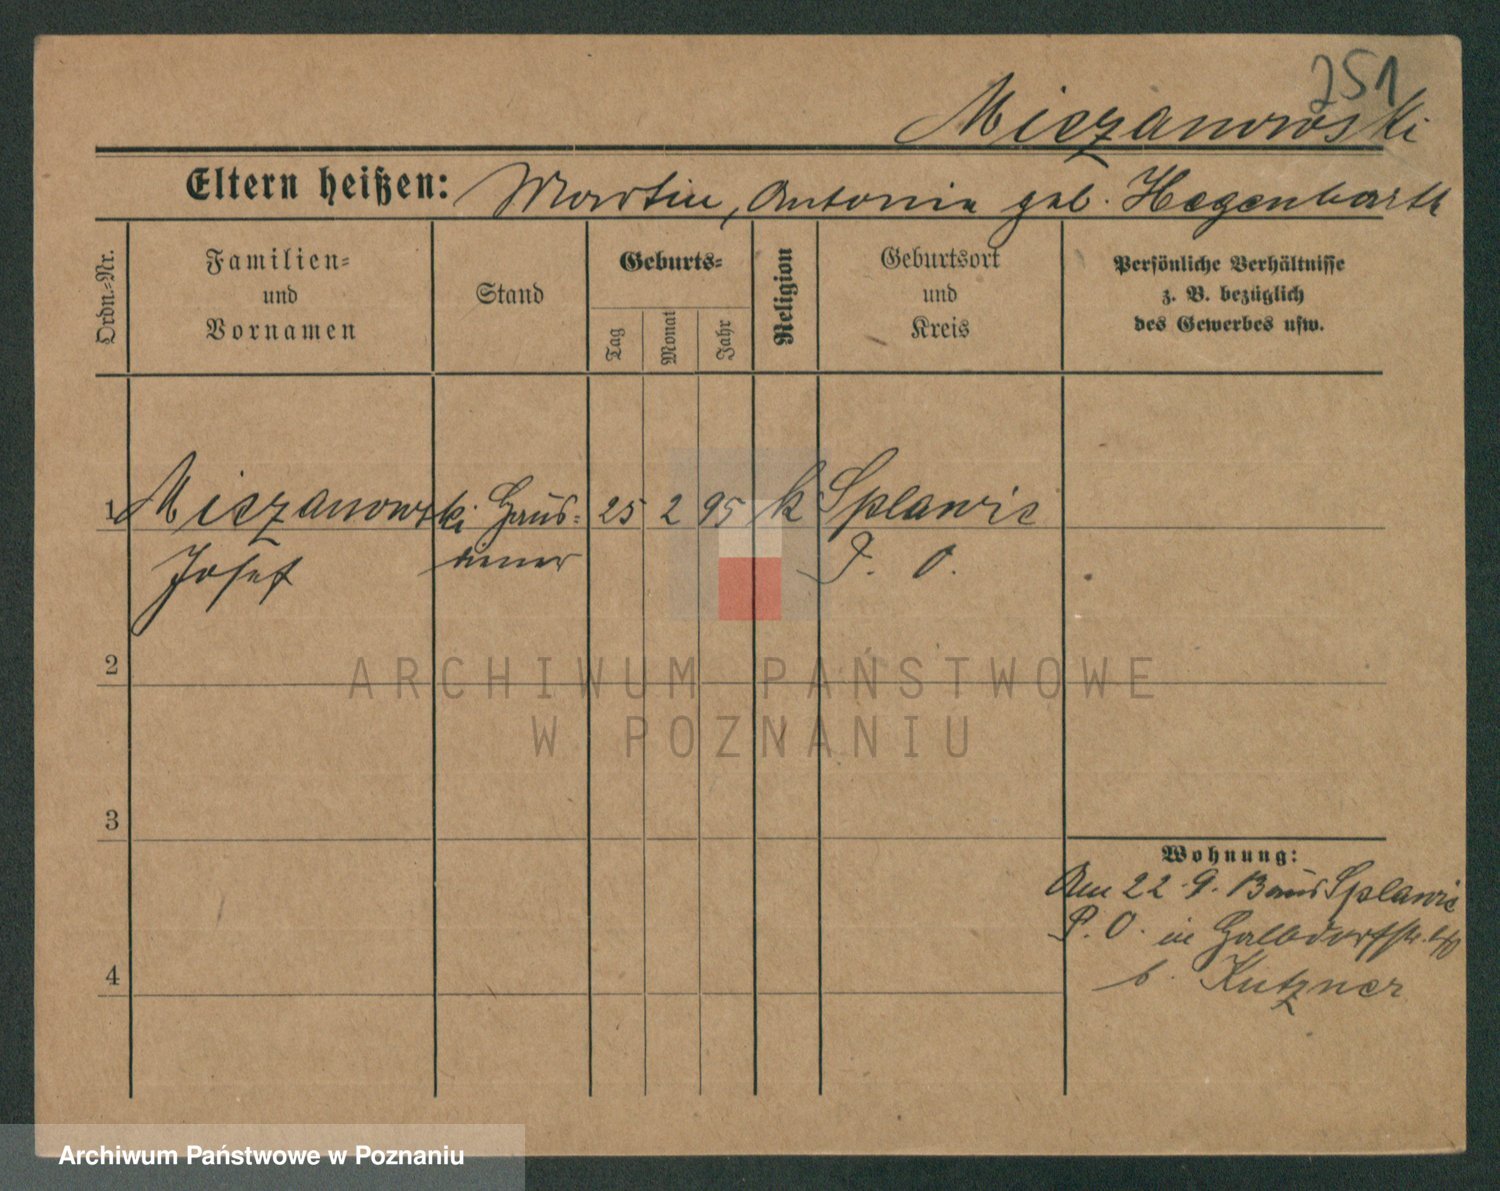 251
Miezanowski
Eltern heißen: Martin, Antonie geb. Hegenbarth
Ordn.-Nr.
Familien-
und
Vornamen
Stand
Geburts-
Tag
Monat
Jahr
Religion
Geburtsort
und
Kreis
Persönliche Verhältnisse
z. B. bezüglich
des Gewerbes usw.
1 Miezanowski Haus- 25 2 95 k Splawie
Josef diener P. O.
2
3
4
Wohnung:
Am 22.9. 13 aus Splawie
P. O. in Halbdorfstr.
b. Kutzner
ARCHIWUM PAŃSTWOWE
W POZNANIU
Archiwum Państwowe w Poznaniu